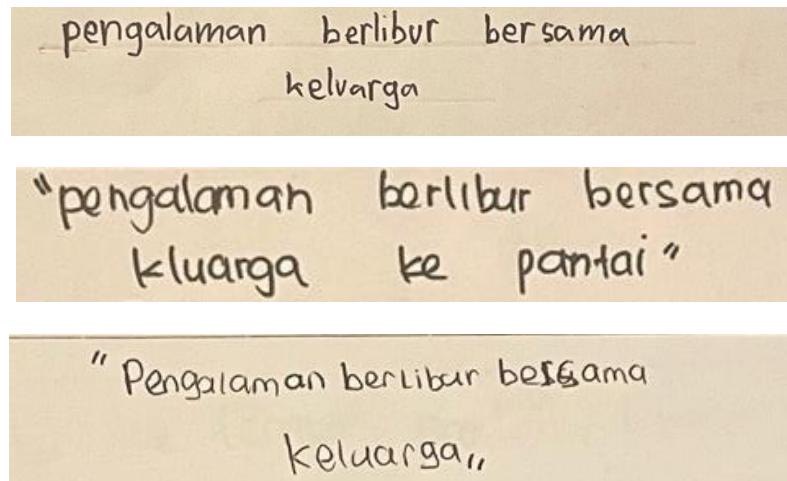 pengalaman berlibur bersama
keluarga
"pengalaman berlibur bersama
kluarga ke pantai"
"Pengalaman berlibur bersama
keluarga"